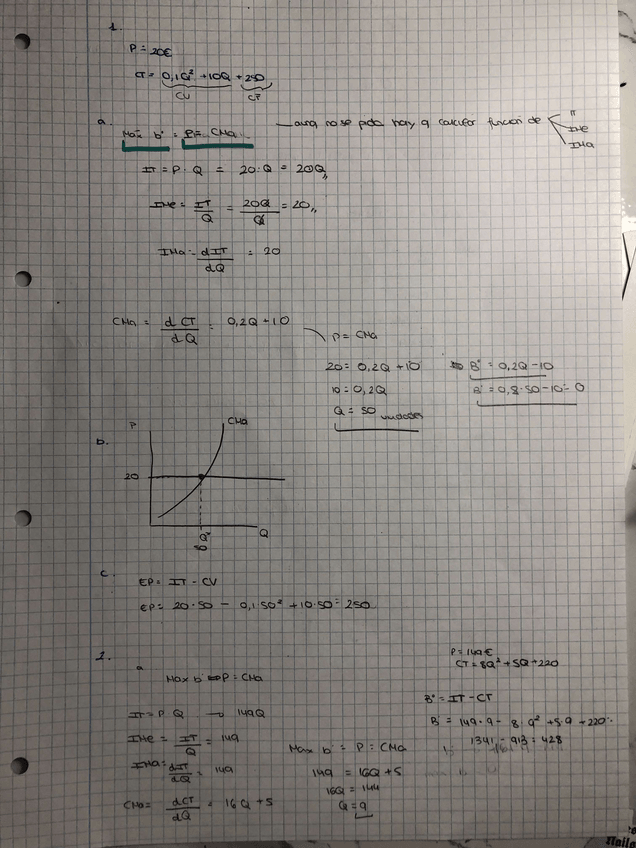 1.
P = 20€
CT = 0,1Q² + 10Q + 250
CV CF
a. Max b° = P = CMa — aunq no se pida hay q calcular funcion de IT
IMe
IMa
IT = P · Q = 20 · Q = 20Q,,
IMe = IT/Q = 20Q/Q = 20,,
IMa = dIT/dQ = 20
CMa = dCT/dQ = 0,2Q + 10
P = CMa
20 = 0,2Q + 10
B° = 0,2Q - 10
10 = 0,2Q
B° = 0,2 · 50 - 10 = 0
Q = 50 unidades
b.
P
CMa
20
Q*
50
Q
c.
EP = IT - CV
EP = 20 · 50 - 0,1 50² + 10 · 50 = 250
2.
P = 149€
CT = 8Q² + 5Q + 220
a
Max b° ⇔ P = CMa
B° = IT - CT
IT = P Q → 149Q
B° = 149 · 9 - 8 · 9² + 5 · 9 + 220 =
IMe = IT/Q = 149
1341 - 913 = 428
Max b° = P = CMa
IMa = dIT/dQ = 149
149 = 16Q + 5
16Q = 144
CMa = dCT/dQ = 16Q + 5
Q = 9